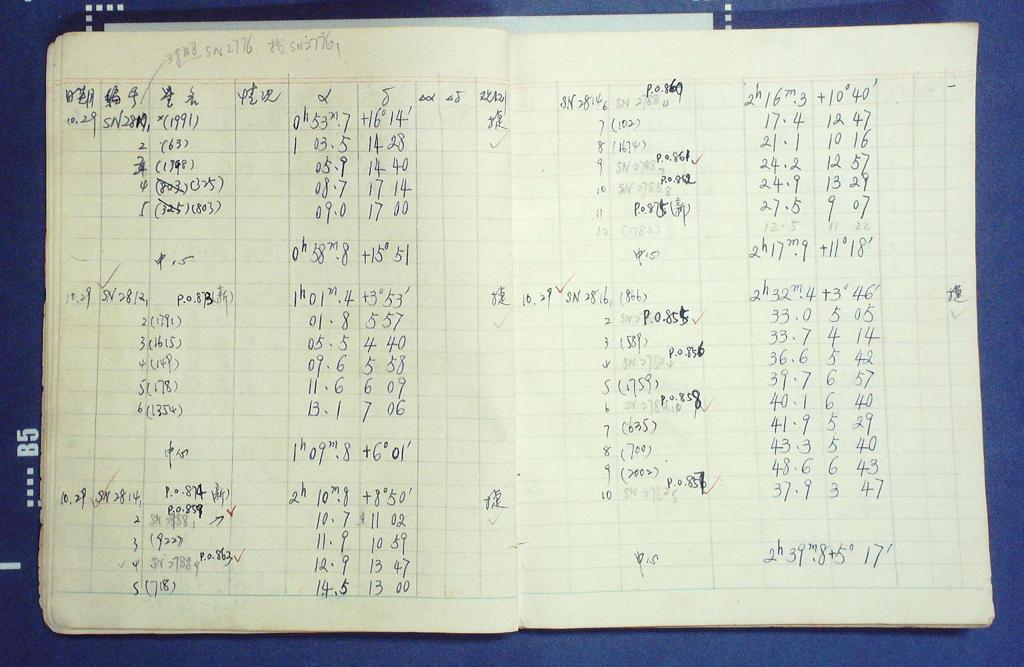 SN2776 我SN2776,
日期 编号 星名 情况 α δ Δα Δδ
10.29 SN281 *(1991) 0ʰ53ᵐ.7 +16°14′ 捷
2 (63) 1 03.5 14 28
3 (1748) 05.9 14 40
4 (802)(325) 08.7 17 14
5 (325)(803) 09.0 17 00
中心 0ʰ58ᵐ.8 +15°51
10.29 SN2812₁ P.O.873(新) 1ʰ01ᵐ.4 +3°53′ 捷
2 (1791) 01.8 5 57
3 (1615) 05.5 4 40
4 (149) 09.6 5 58
5 (178) 11.6 6 09
6 (1354) 13.1 7 06
中心 1ʰ09ᵐ.8 +6°01′
10.29 SN2814₁ P.O.874(新) 2ʰ10ᵐ.8 +8°50′ 捷
2 P.O.859 10.7 11 02
3 (922) 11.9 10 59
4 SN2788₉ P.O.863 12.9 13 47
5 (718) 14.5 13 00
SN2814₆ P.O.860 2ʰ16ᵐ.3 +10°40′
7 (102) 17.4 12 47
8 (1674) 21.1 10 16
9 P.O.861 24.2 12 57
10 SN2788₈ P.O.862 24.9 13 29
11 P.O.875(新) 27.5 9 07
12 (1782) 12.5 11 22
中心 2ʰ17ᵐ.9 +11°18′
10.29 SN2816₁ (866) 2ʰ32ᵐ.4 +3°46′ 捷
2 P.O.855 33.0 5 05
3 (589) 33.7 4 14
4 P.O.856 36.6 5 42
5 (1759) 39.7 6 57
6 P.O.858 40.1 6 40
7 (635) 41.9 5 29
8 (700) 43.3 5 40
9 (2002) 48.6 6 43
10 P.O.857 37.9 3 47
中心 2ʰ39ᵐ.8 +5°17′
B5